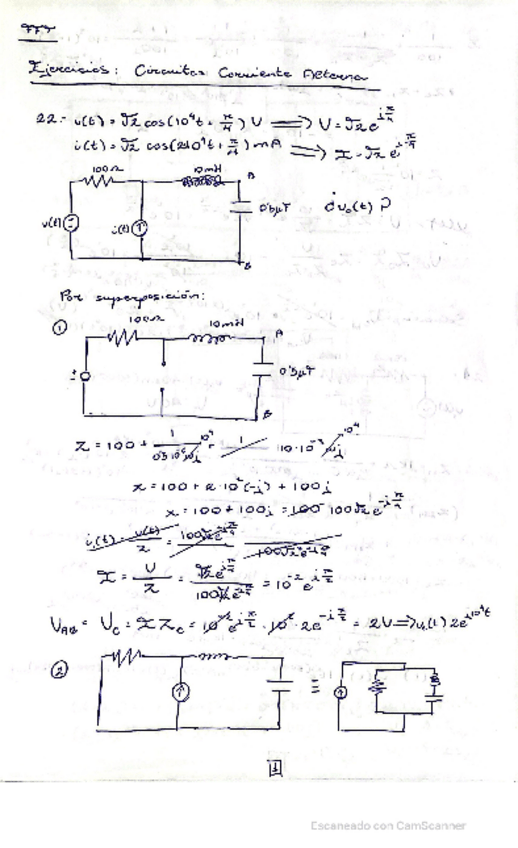 FFT
Ejercicios: Circuitos Corriente Alterna
22.- v(t) = √2 cos(10⁴t + π/4) V ⟹ V = √2 e^{jπ/4}
i(t) = √2 cos(2·10⁴t + π/4) mA ⟹ I = √2 e^{jπ/4}
100Ω 10mH A
v(t) i(t) 0'5μF ¿v₀(t)?
B
Por superposición:
① 100Ω 10mH A
0'5μF
B
Z = 100 + 1/(0'5·10⁻⁶ωj) 10⁴ + 10·10⁻³ωj 10⁴
z = 100 + 2·10²(-j) + 100j
z = 100 + 100j = 100√2 e^{-jπ/4}
I = V/Z = √2e^{jπ/4}/100√2e^{-jπ/4} = 10⁻² e^{jπ/2}
V_AB = V_C = I Z_C = 10⁻² e^{jπ/2} · 10² · 2e^{-jπ/2} = 2V ⟹ v₁(t) 2e^{j10⁴t}
② ≡
1
Escaneado con CamScanner